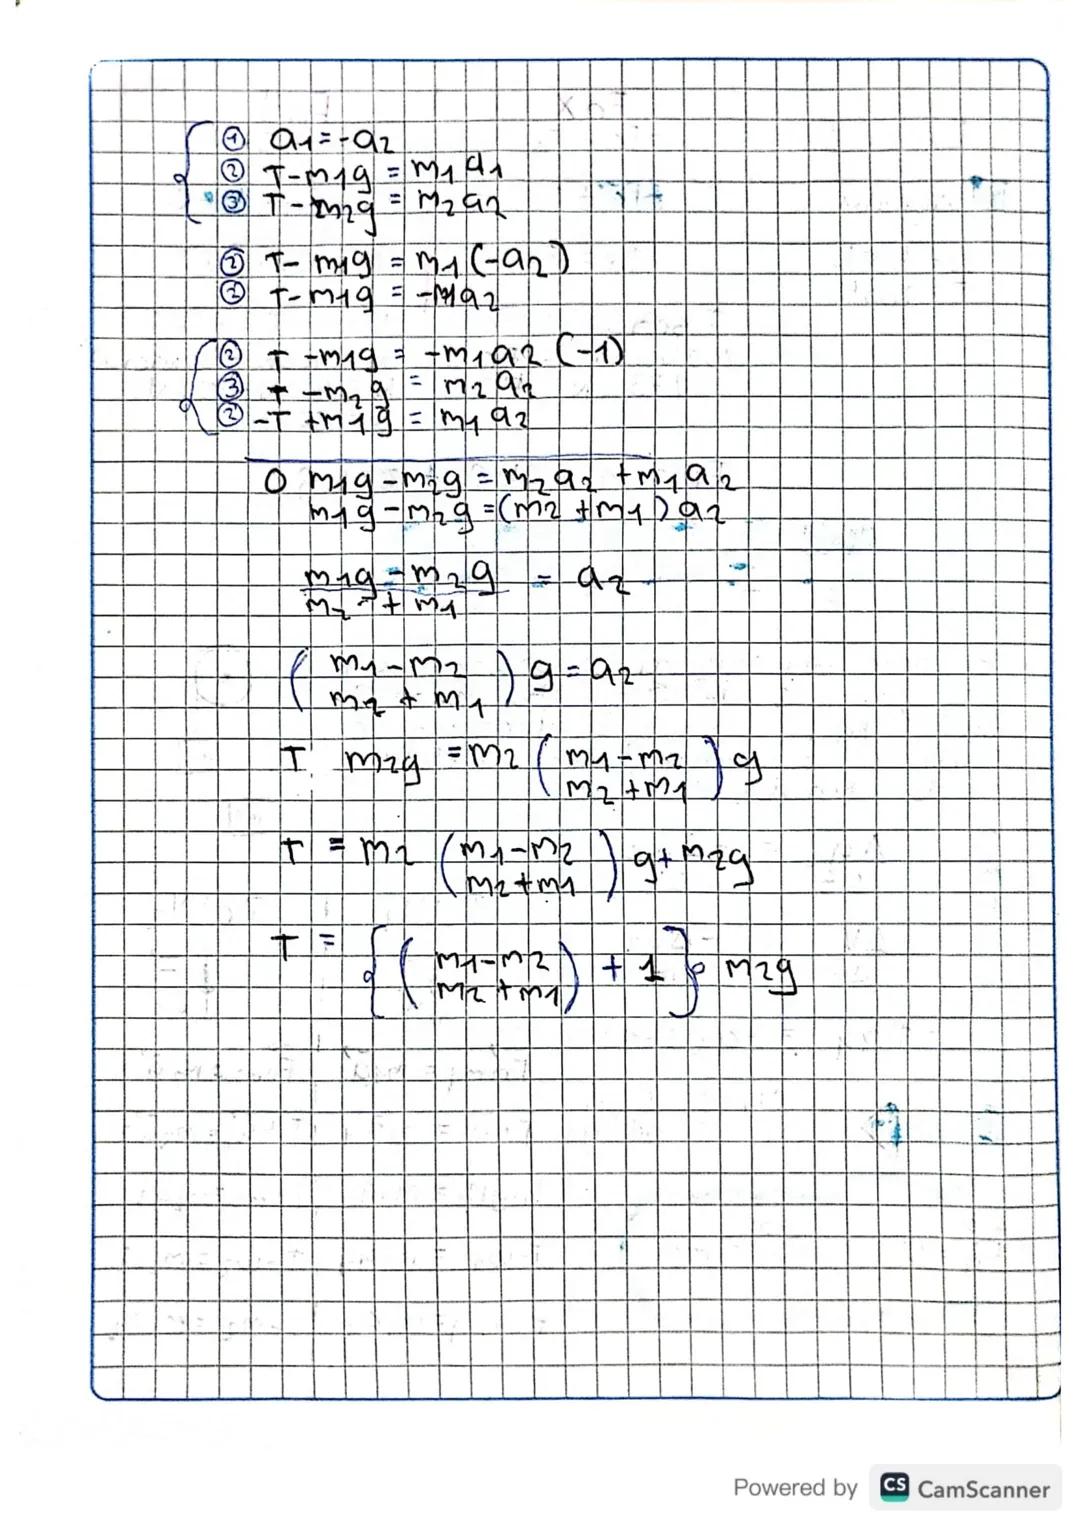 ① a1=-a2
② T-m1g = m1a1
③ T-m2g = m2a2
② T-m1g = m1(-a2)
② T-m1g = -m1a2
② T-m1g = -m1a2 (-1)
③ T-m2g = m2a2
② -T+m1g = m1a2
0 m1g-m2g = m2a2+m1a2
m1g-m2g=(m2+m1)a2
m1g-m2g = a2
m2+m1
(m1-m2) g=a2
m2+m1
T m2g = m2 (m1-m2) g
m2+m1
T = m2 (m1-m2) g+m2g
m2+m1
T = {(m1-m2) + 1} m2g
m2+m1
Powered by CS CamScanner